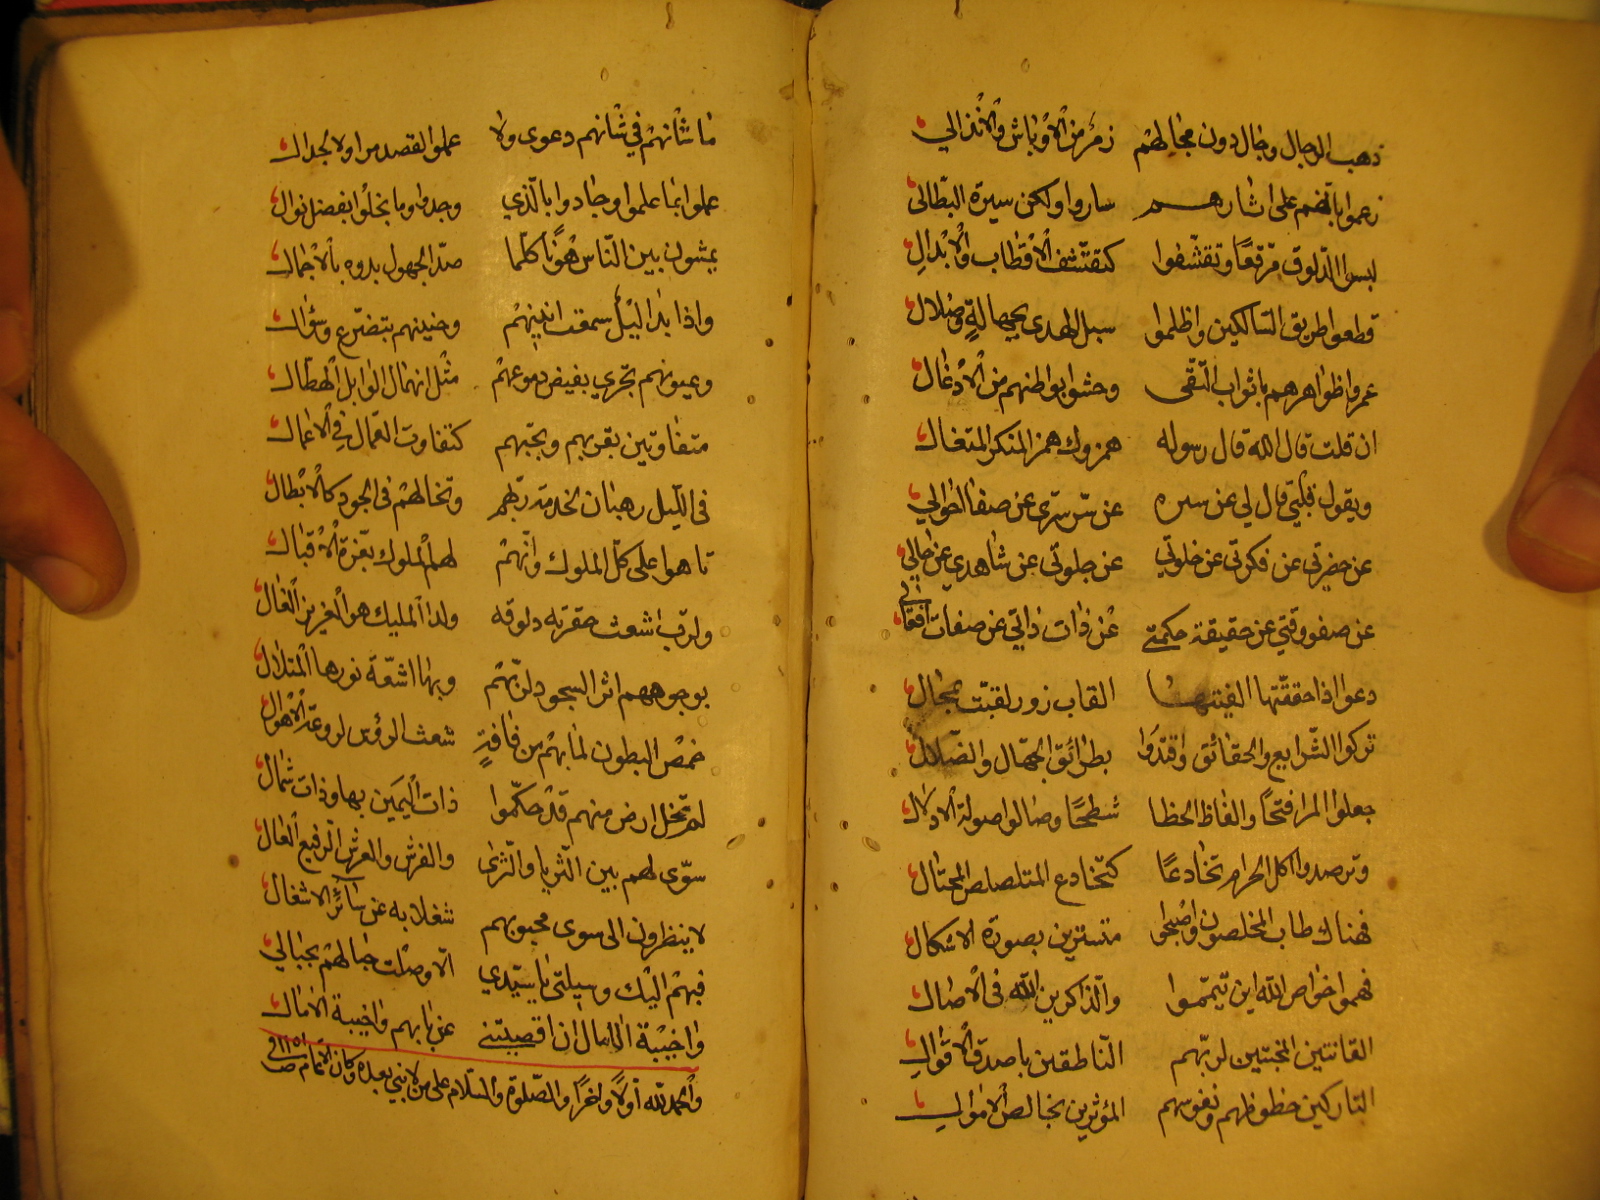 ذهب الرجال وحال دون مجالهم زمر من الأوباش والأنذالي
زعموا بأنهم على اثارهم ساروا ولكن سيرة البطالى
لبسوا الدلوق مرقعًا وتقشفوا كتقشف الأقطاب والأبدالِ
قطعوا طريق السالكين واظلموا سبل الهدى بجهالةٍ وضلال
عمروا ظواهرهم باثواب التقى وحشوا بواطنهم من الأدغال
ان قلت قال الله قال رسوله همزوك همز المنكر المتغال
ويقول قلبي قال لي عن سره عن سرّ سرّى عن صفا احوالي
عن حضرتي عن فكرتى عن خلوتي عن جلوتى عن شاهدي عن حالي
عن صفو وقتي عن حقيقة حكمتے عن ذات ذاتي عن صفات افعالي
دعوا اذا حققتها الفيتها القاب زور لقبت بمحال
تركوا الشرايع والحقائق واقتدوا بطرائق الجهال والضلال
جعلوا المرا فتحًا والفاظ الخطا شطحًا وصالوا صولة الادلال
وترصدوا اكل الحرام تخادعًا كتخادع المتلصلص المحتال
فهناك طاب المخلصون واصبحوا متسترين بصورة الاشكال
فهموا خواص الله اين تيمموا والذاكرين الله فى الأصال
القانتين المخبتين لربهم الناطقين باصدق الأقوالِ
التاركين حظوظهم ونفوسهم المؤثرين بخالص الأموالِ
ما شأنهم في شأنهم دعوى ولا عملوا لقصد مرا ولا لجدال
عملوا بما علموا وجادوا بالّذي وجدوا وما بخلوا بفضل نوال
يمشون بين النّاس هونًا كلما صدّ الجهول بدوه بالأجمال
واذا بدا ليل سمعت انينهم وحنينهم بتضرّع وسؤال
وعيونهم تجري بفيض دموعهم مثل انهمال الوابل الهطال
متفاوتين بقربهم وبحبهم كتفاوت العمال في الاعمال
فى الليل رهبان لخدمة ربهم وتخالهم فى الجود كالأبطال
تاهوا على كل الملوك وانهم لهم الملوك بعزة الأقبال
ولرب اشعث حقرته دلوقه ولدا المليك هو العزيز الغال
بوجوههم اثر السجود لربّهم وبها اشعّة نورها المتلال
خمص البطون لما بهم من فاقةٍ شعث الرؤس لروعة الأهوال
لم تخل ارض منهم قد حكّموا ذات اليمين بها وذات شمال
سوّى لهم بين الثريا والثرى والفرش والعرش الرفيع العال
لا ينظرون الى سوى محبوبهم شغلا به عن سائر الاشغال
فبهم اليك وسيلتى يا سيّدي الا وصلت حبالهم بحبالي
واخيبة الامال ان اقصيتني عن بابهم واخيبة الامال
والحمد لله أولًا واخرًا والصلوة والسلام على من لا نبي بعده وكان الاتمام ١١٥١